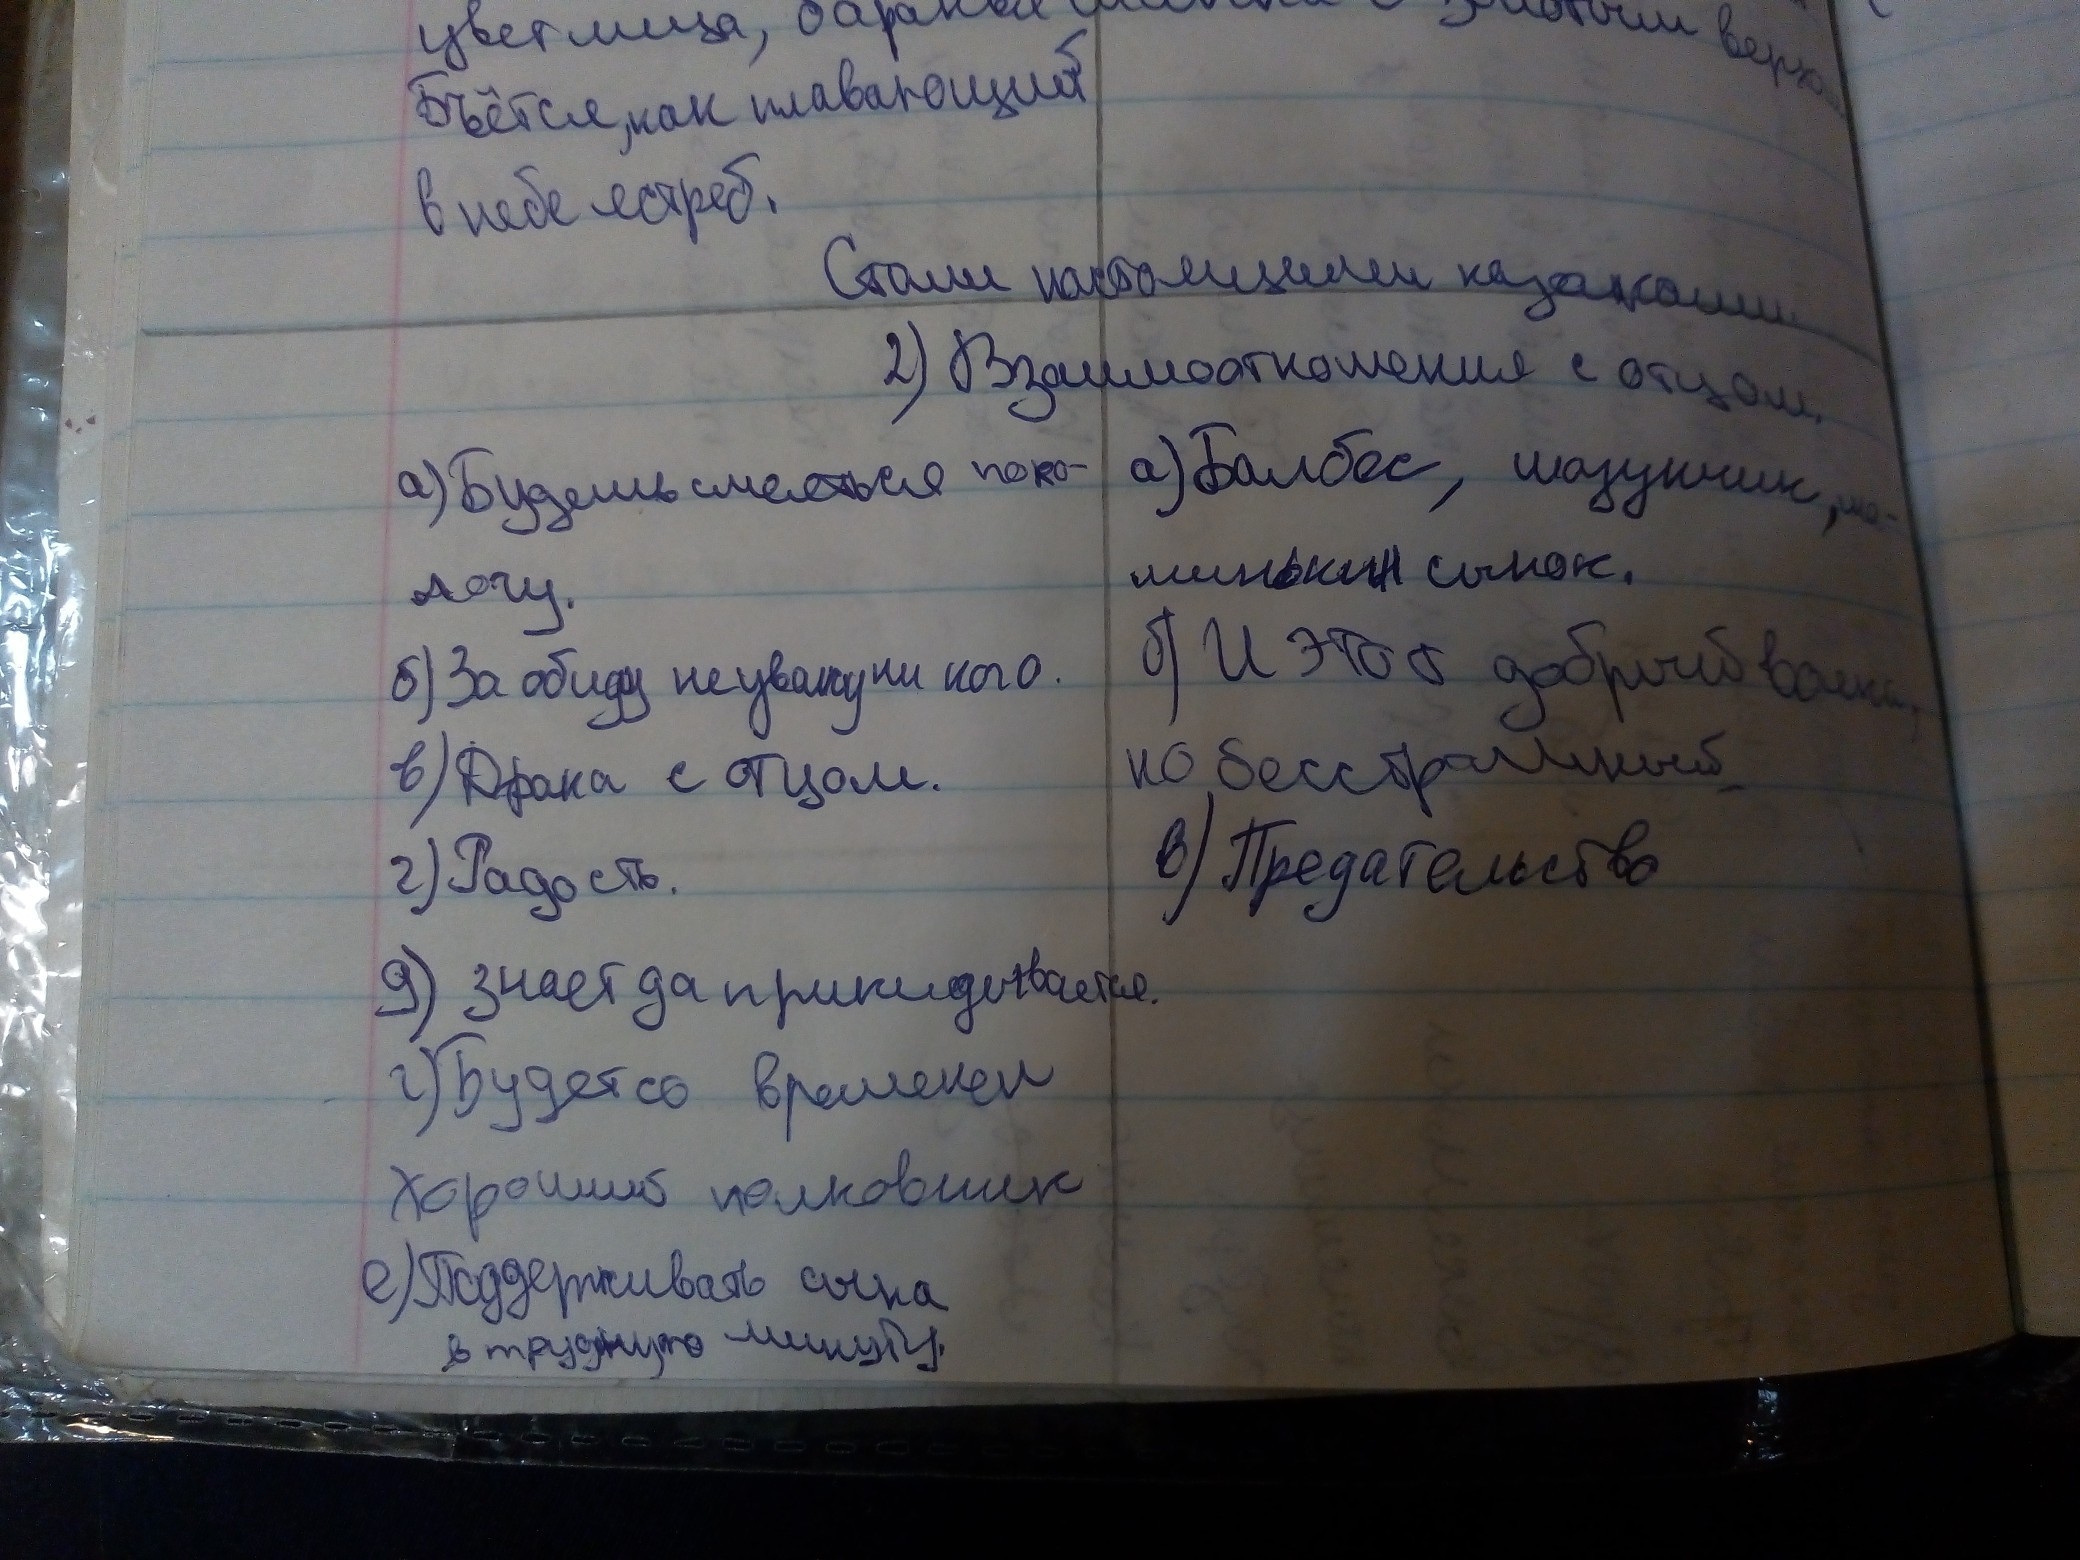 цвет лица, баранья шапка с золотым верхом
Бьётся, как плавающий
в небе ястреб.
Стали настоящими казаками
2) Взаимоотношения с отцом.
а) Будешь смеяться поко-
лочу.
б) За обиду не уважу ни кого.
в) Драка с отцом.
г) Радость.
д) знает да прикидывается.
г) Будет со временем
хороший полковник
е) Поддерживать сына
в трудную минуту.
а) Балбес, мазунчик, ма-
минькин сынок.
б) И этот добрый вояка,
но бесстрашный
в) Предательство